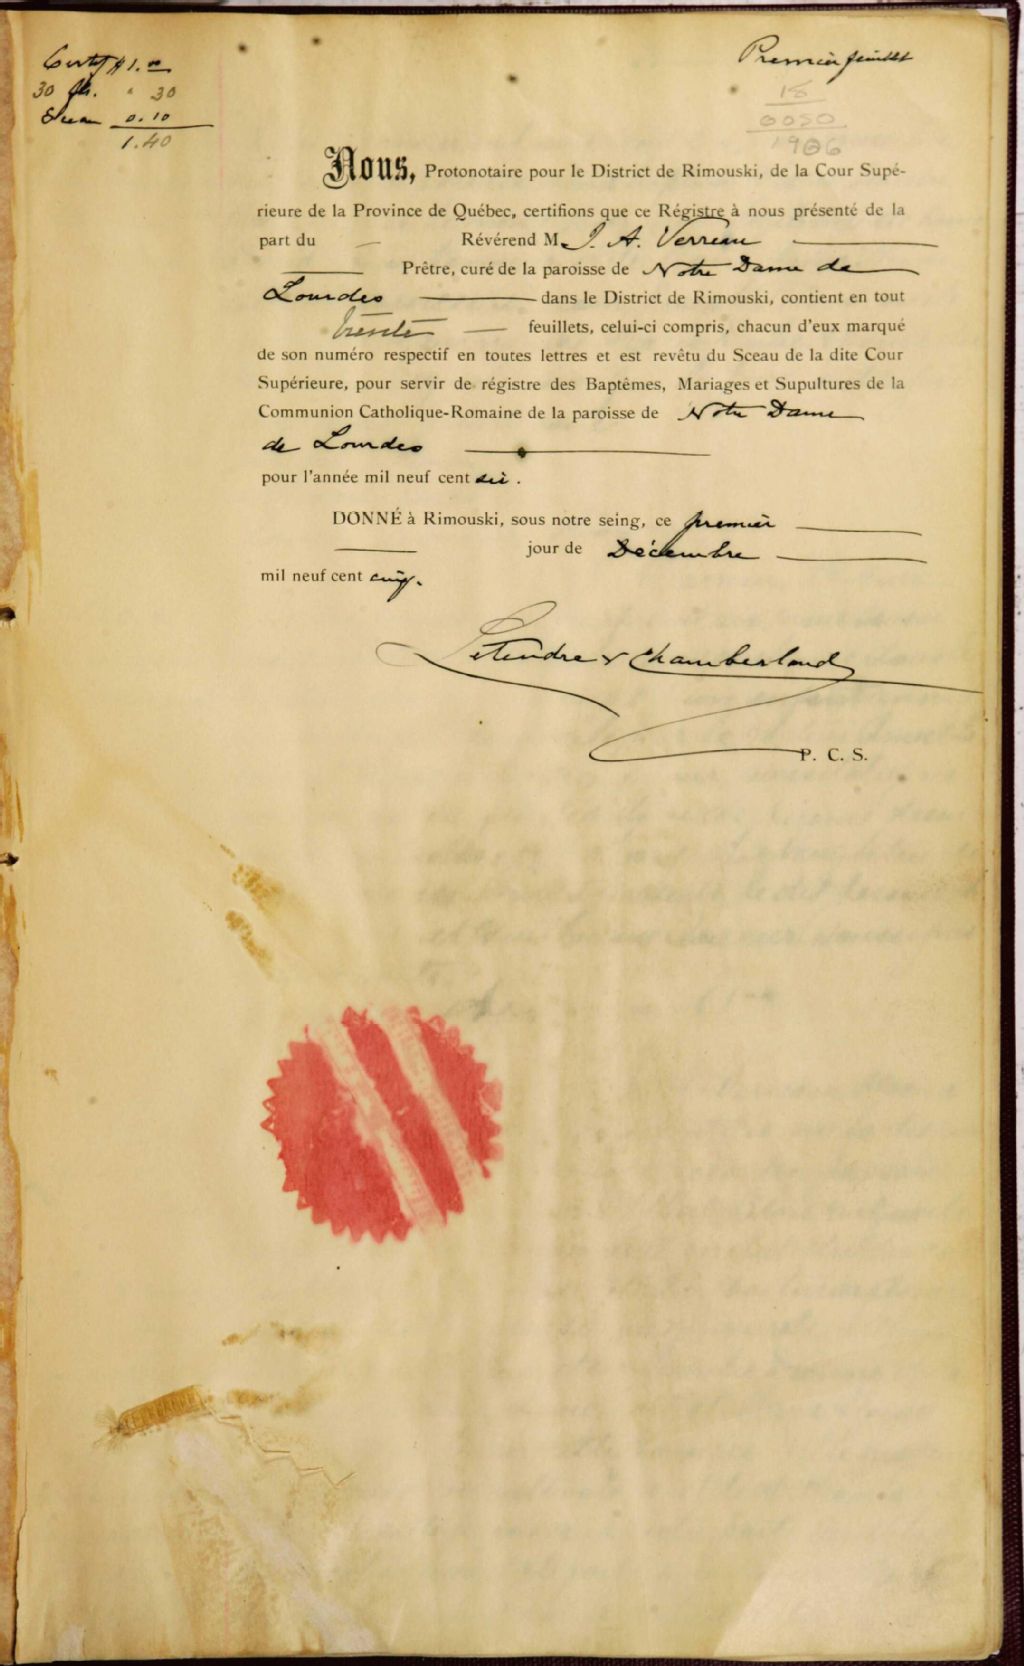 Certif $1.00
30 fls. " 30
Sceau 0.10
1.40
Premier feuillet
18
0050
1906
Nous, Protonotaire pour le District de Rimouski, de la Cour Supé-
rieure de la Province de Québec, certifions que ce Régistre à nous présenté de la
part du — Révérend M. J. A. Verreau
Prêtre, curé de la paroisse de Notre Dame de
Lourdes dans le District de Rimouski, contient en tout
trente feuillets, celui-ci compris, chacun d'eux marqué
de son numéro respectif en toutes lettres et est revêtu du Sceau de la dite Cour
Supérieure, pour servir de régistre des Baptêmes, Mariages et Supultures de la
Communion Catholique-Romaine de la paroisse de Notre Dame
de Lourdes
pour l'année mil neuf cent six.
DONNÉ à Rimouski, sous notre seing, ce premier
jour de Décembre
mil neuf cent cinq.
Letendre & Chamberland
P. C. S.